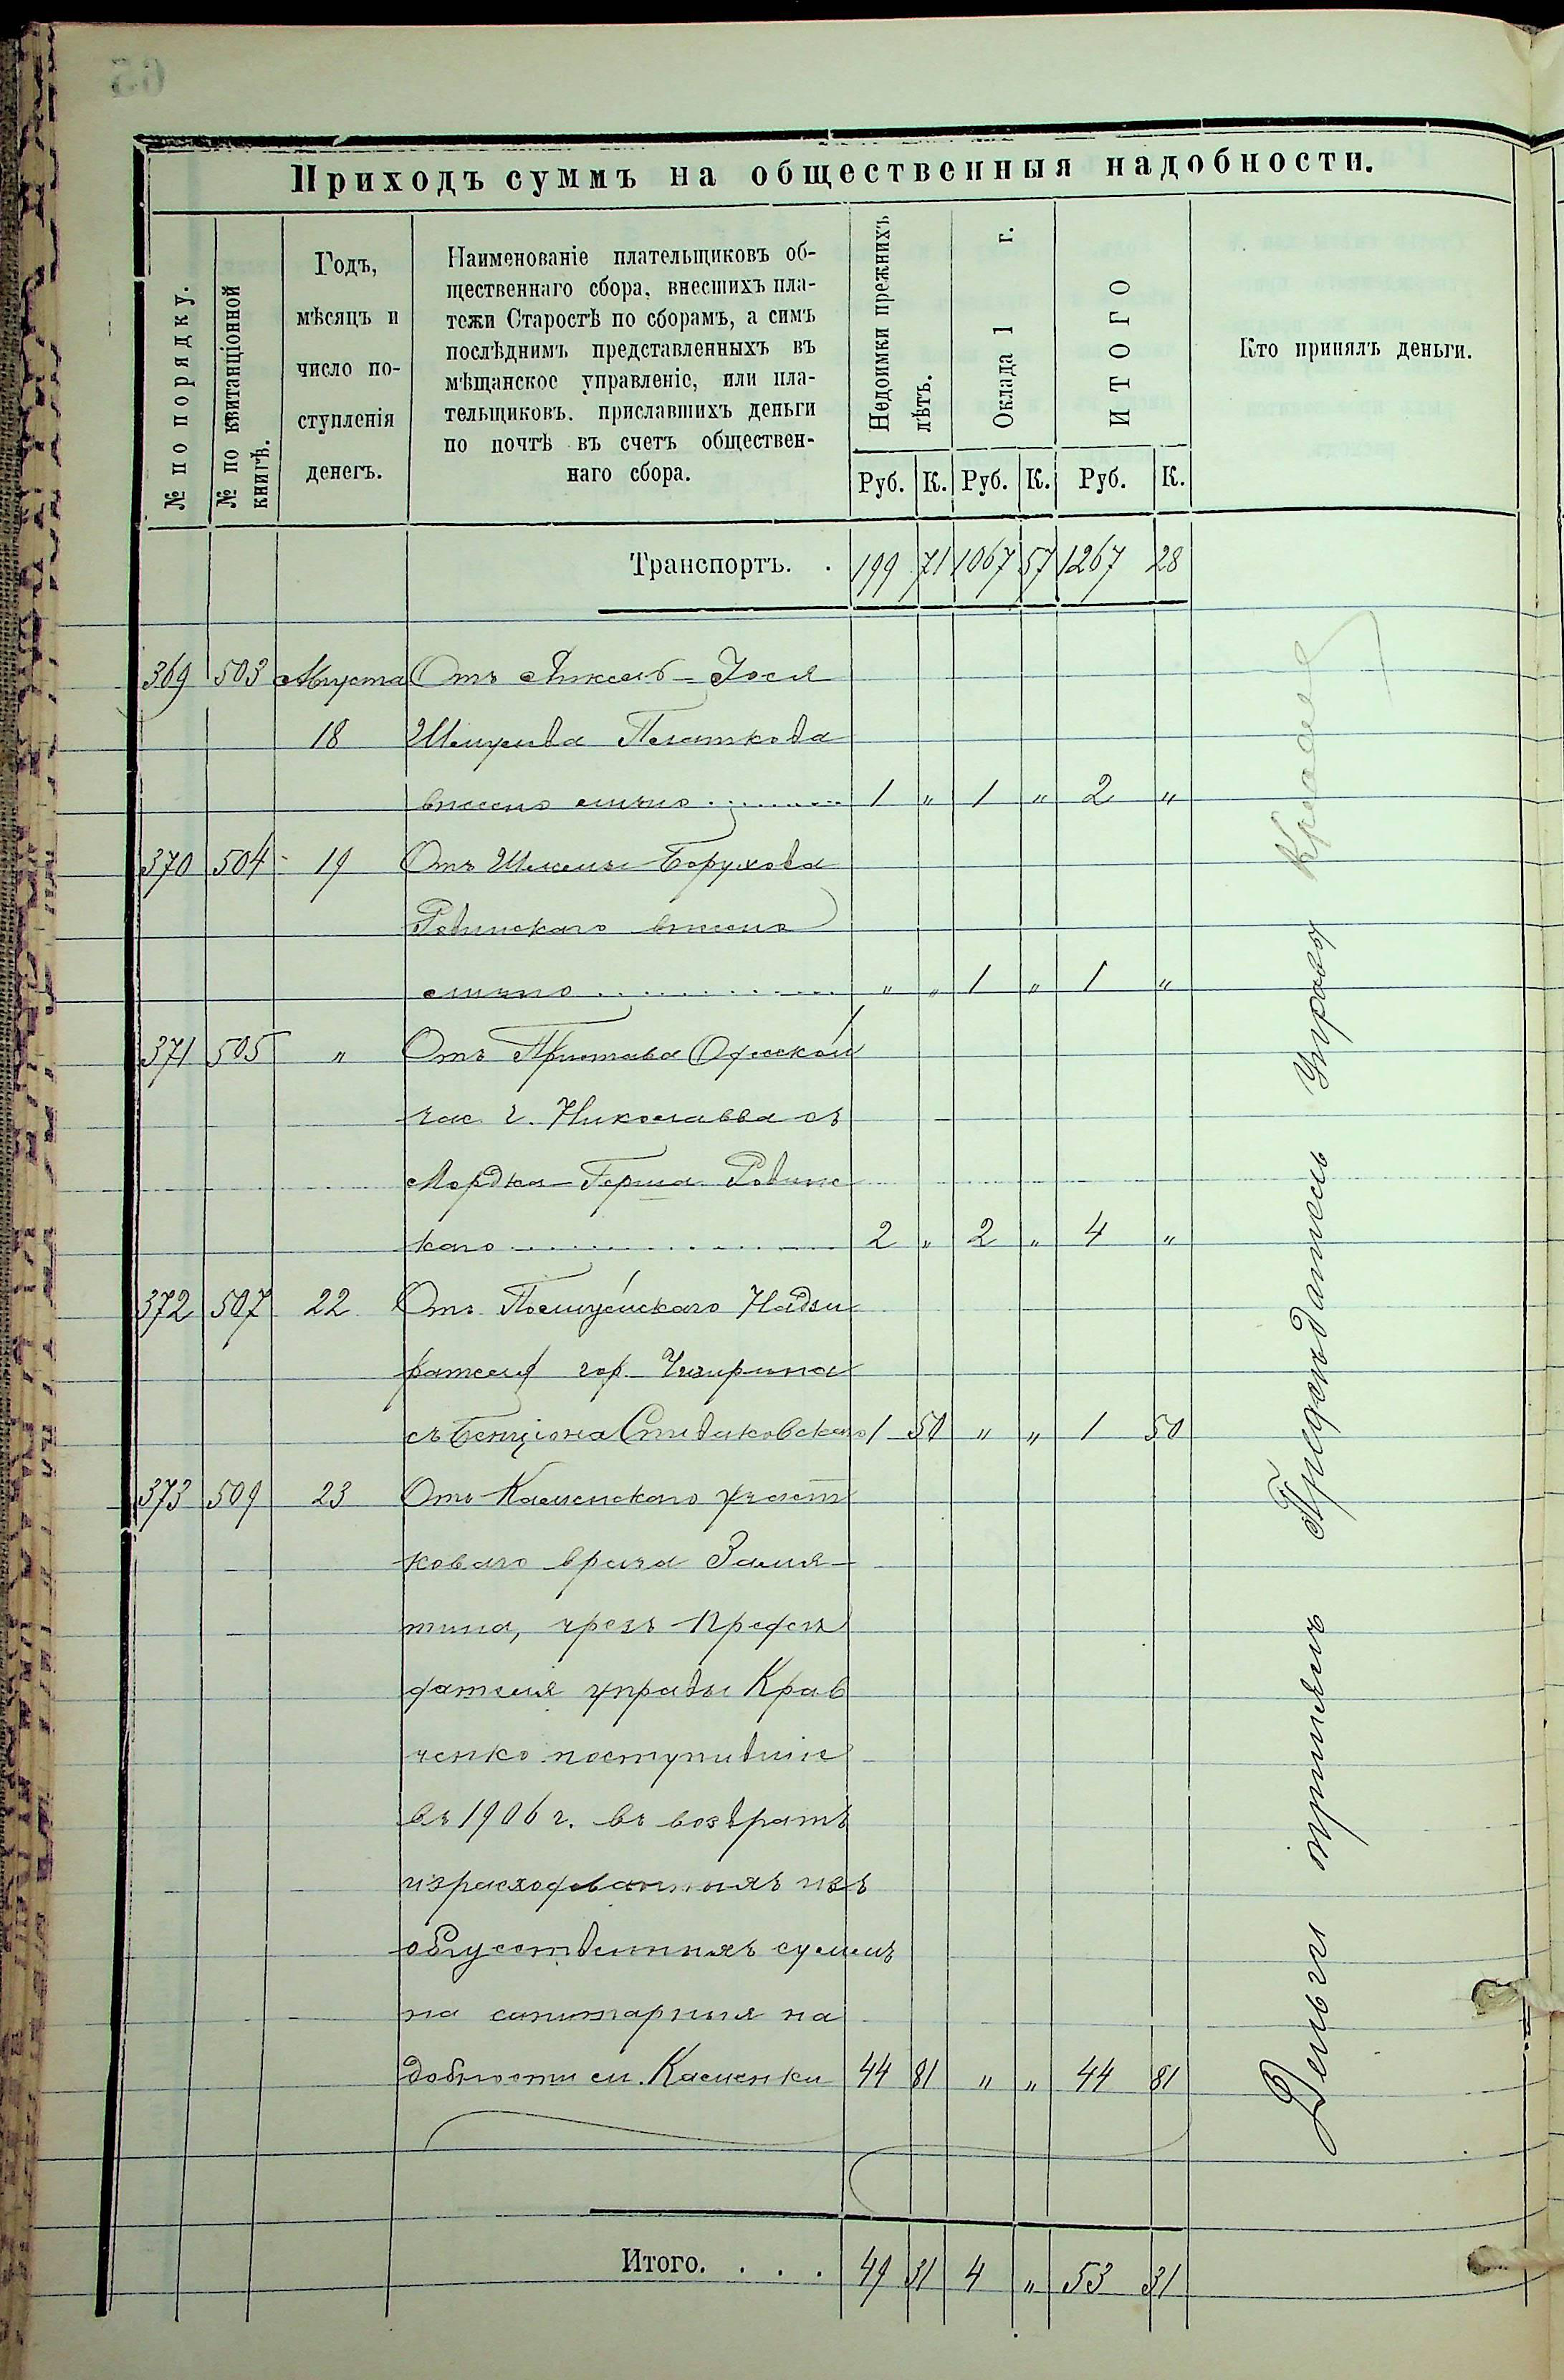 Приходъ суммъ на общественныя надобности.
№ по порядку.
№ по квитанціонной
книгѣ.
Годъ,
мѣсяцъ и
число по-
ступленія
денегъ.
Наименованіе плательщиковъ об-
щественнаго сбора, внесшихъ пла-
тежи Старостѣ по сборамъ, а симъ
послѣднимъ представленныхъ въ
мѣщанское управленіе, или пла-
тельщиковъ. приславшихъ деньги
по почтѣ въ счетъ обществен-
наго сбора.
Недоимки прежнихъ
лѣтъ.
Оклада 1 г.
ИТОГО
Кто принялъ деньги.
Руб. К. Руб. К. Руб. К.
Транспортъ. . 199 71 1067 57 1267 28
369 503 Августа Отъ Янкель-Іося
18 Шмулева Платкова
внесено лично 1 " 1 " 2 "
370 504 19 Отъ Шлемы Борухова
Ровинскаго внесено
лично " " 1 " 1 "
371 505 " Отъ Пристава Одесской
час. г. Николаева съ
Мордка-Герша Ровинс
каго 2 " 2 " 4 "
372 507 22 Отъ Полицейскаго Надзи
рателя гор. Чигирина
съ Бенціона Спиваковскаго 1 50 " " 1 50
373 509 23 Отъ Каменскаго участ
коваго врача Замя-
тина, чрезъ Предсѣ
дателя управы Крав
ченко поступившіе
въ 1906 г. въ возвратъ
израсходованныхъ изъ
общественныхъ суммъ
на санитарныя на
добности м. Каменки 44 81 " " 44 81
Итого. . . . 49 31 4 " 53 31
Деньги принялъ Предсѣдатель Управы